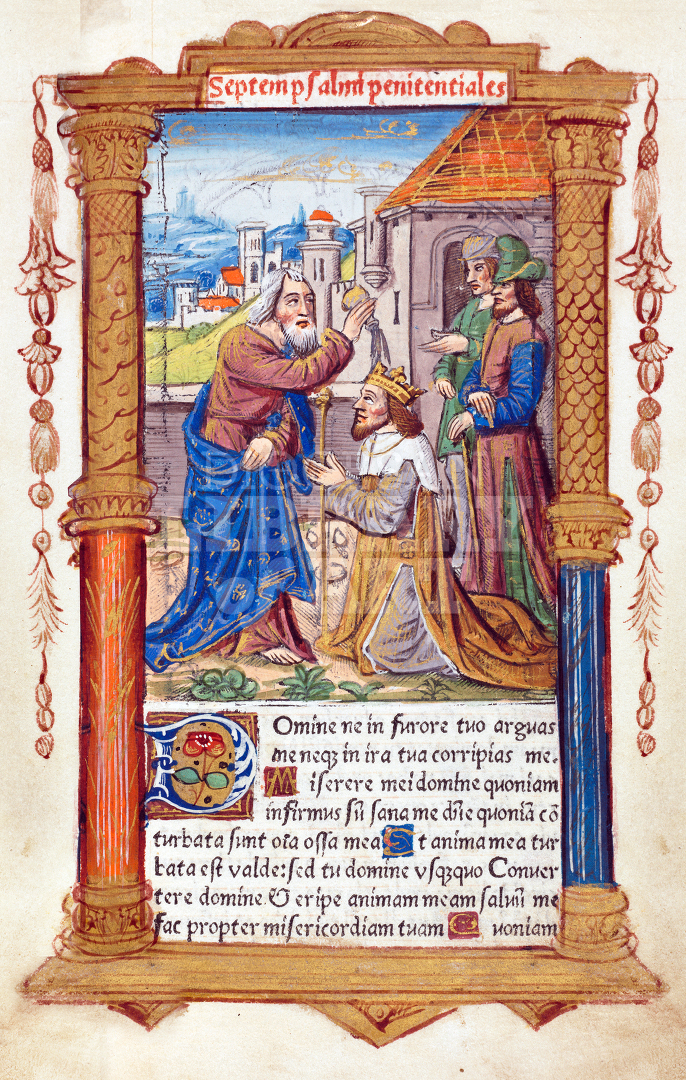 Septem psalmi penitentiales
Domine ne in furore tuo arguas
me neqz in ira tua corripias me.
Miserere mei domine quoniam
infirmus sū sana me dn̄e quoniā cō
turbata sunt oīa ossa mea Et anima mea tur
bata est valde: sed tu domine vsqzquo Conuer
tere domine. Et eripe animam meam saluū me
fac propter misericordiam tuam Quoniam